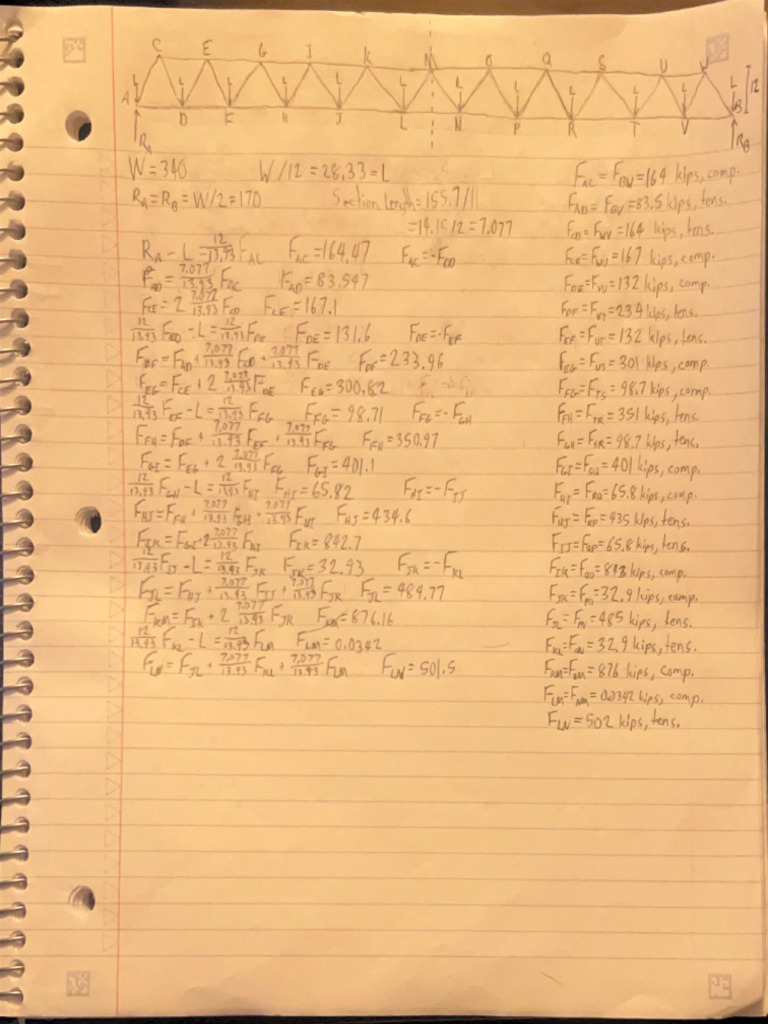 C E G I K M O Q S U W
L L L L L L L L L L L L
A D K H J L N P R T V B 12
R_A R_B
W = 340 W/12 = 28.33 = L
R_A = R_B = W/2 = 170 Section Length = 155.7/11
= 14.15/2 = 7.077
R_A - L = 12/13.93 F_AC F_AC = 164.47 F_AC = -F_CD
F_AD = 7.077/13.93 F_AC F_AD = 83.547
F_CE = 2 7.077/13.93 F_CD F_CE = 167.1
12/13.93 F_CD - L = 12/13.93 F_DE F_DE = 131.6 F_DE = -F_EF
F_DF = F_AD + 7.077/13.93 F_CD + 7.077/13.93 F_DE F_DF = 233.96
F_EG = F_CE + 2 7.077/13.93 F_DE F_EG = 300.82
12/13.93 F_EF - L = 12/13.93 F_FG F_FG = 98.71 F_FG = -F_GH
F_FH = F_DF + 7.077/13.93 F_EF + 7.077/13.93 F_FG F_FH = 350.97
F_GI = F_EG + 2 7.077/13.93 F_FG F_GI = 401.1
12/13.93 F_GH - L = 12/13.93 F_HI F_HI = 65.82 F_HI = -F_IJ
F_HJ = F_FH + 7.077/13.93 F_GH + 7.077/13.93 F_HI F_HJ = 434.6
F_IK = F_GI + 2 7.077/13.93 F_HI F_IK = 842.7
12/13.93 F_IJ - L = 12/13.93 F_JK F_JK = 32.93 F_JK = -F_KL
F_JL = F_HJ + 7.077/13.93 F_IJ + 7.077/13.93 F_JK F_JL = 484.77
F_KM = F_IK + 2 7.077/13.93 F_JK F_KM = 876.16
12/13.93 F_KL - L = 12/13.93 F_LM F_LM = 0.0342
F_LN = F_JL + 7.077/13.93 F_KL + 7.077/13.93 F_LM F_LN = 501.5
F_AC = F_BW = 164 kips, comp.
F_AD = F_BV = 83.5 kips, tens.
F_CD = F_WV = 164 kips, tens.
F_CE = F_WU = 167 kips, comp.
F_DE = F_VU = 132 kips, comp.
F_DF = F_VT = 234 kips, tens.
F_EF = F_UT = 132 kips, tens.
F_EG = F_US = 301 kips, comp.
F_FG = F_TS = 98.7 kips, comp.
F_FH = F_TR = 351 kips, tens.
F_GH = F_SR = 98.7 kips, tens.
F_GI = F_SQ = 401 kips, comp.
F_HI = F_RQ = 65.8 kips, comp.
F_HJ = F_RP = 435 kips, tens.
F_IJ = F_QP = 65.8 kips, tens.
F_IK = F_QO = kips, comp.
F_JK = F_PO = 32.9 kips, comp.
F_JL = F_PN = 485 kips, tens.
F_KL = F_ON = 32.9 kips, tens.
F_KM = F_OM = 876 kips, comp.
F_LM = F_NM = 0.0342 kips, comp.
F_LN = 502 kips, tens.